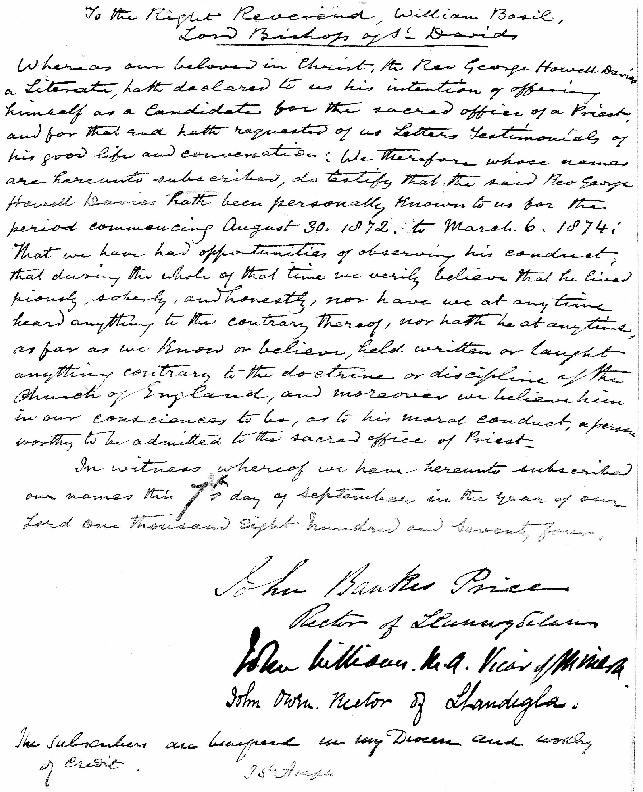 To the Right Reverend, William Basil,
Lord Bishop of St Davids
Whereas our beloved in Christ, the Rev George Howell Davies
a Literate, hath declared to us his intention of offering
himself as a Candidate for the sacred office of a Priest,
and for that end hath requested of us Letters Testimonials of
his good life and conversation: We therefore whose names
are hereunto subscribed, do testify that the said Rev George
Howell Davies hath been personally known to us for the
period commencing August 30. 1872. to March. 6. 1874:
that we have had opportunities of observing his conduct;
that during the whole of that time we verily believe that he lived
piously, soberly, and honestly, nor have we at any time
heard anything to the contrary thereof, nor hath he at any time,
as far as we know or believe, held written or taught
anything contrary to the doctrine or discipline of the
Church of England, and moreover we believe him
in our consciences to be, as to his moral conduct, a person
worthy to be admitted to the sacred office of Priest
In witness whereof we have hereunto subscribed
our names this 7th day of September in the year of our
Lord one thousand eight hundred and seventy four.
John Bankes Price
Rector of
John William. M.A. Vicar of
John Owen. Rector of Llandegla.
The subscribers are beneficed in my Diocese and worthy
of credit.